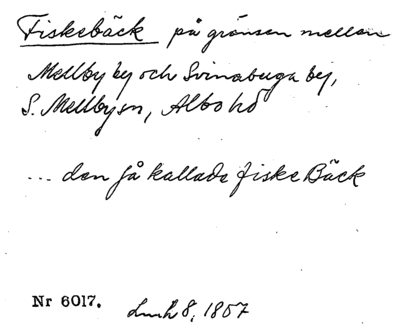 Fiskebäck på gränsen mellan
Mellby by och Svinaberga by,
S. Mellby sn, Albo hd
... den så kallade fiske Bäck
Nr 6017. 8, 1857